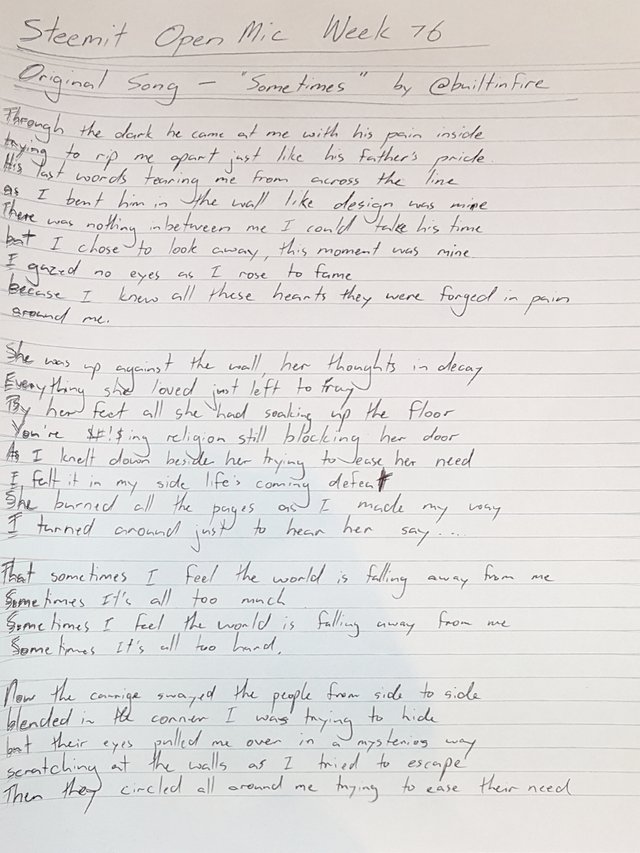 Steemit Open Mic Week 76
Original Song – "Sometimes" by @builtinfire
Through the dark he came at me with his pain inside
trying to rip me apart just like his father's pride.
His last words tearing me from across the line
as I bent him in the wall like design was mine
There was nothing inbetween me I could take his time
but I chose to look away, this moment was mine
I gazed no eyes as I rose to fame
becase I knew all these hearts they were forged in pain
around me.
She was up against the wall, her thoughts in decay
Everything she loved just left to fray
By her feet all she had soaking up the floor
You're $#!$ing religion still blocking her door
As I knelt down beside her trying to ease her need
I felt it in my side life's coming defeat
She burned all the pages as I made my way
I turned around just to hear her say....
That sometimes I feel the world is falling away from me
Sometimes It's all too much
Sometimes I feel the world is falling away from me
Sometimes It's all too hard.
Now the carrige swayed the people from side to side
blended in the corner I was trying to hide
but their eyes pulled me over in a mysterios way
scratching at the walls as I tried to escape
Then they circled all around me trying to ease their need